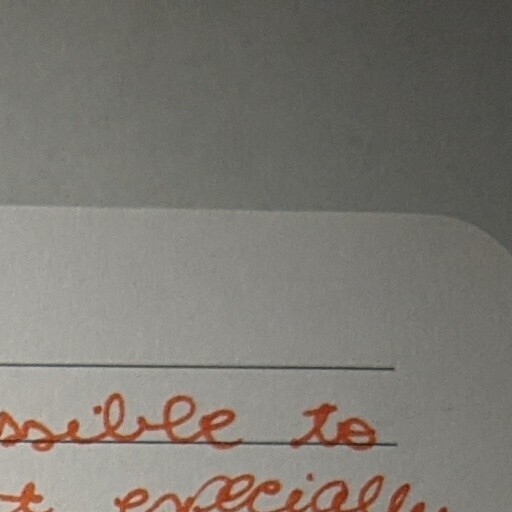 ssible to
t especially